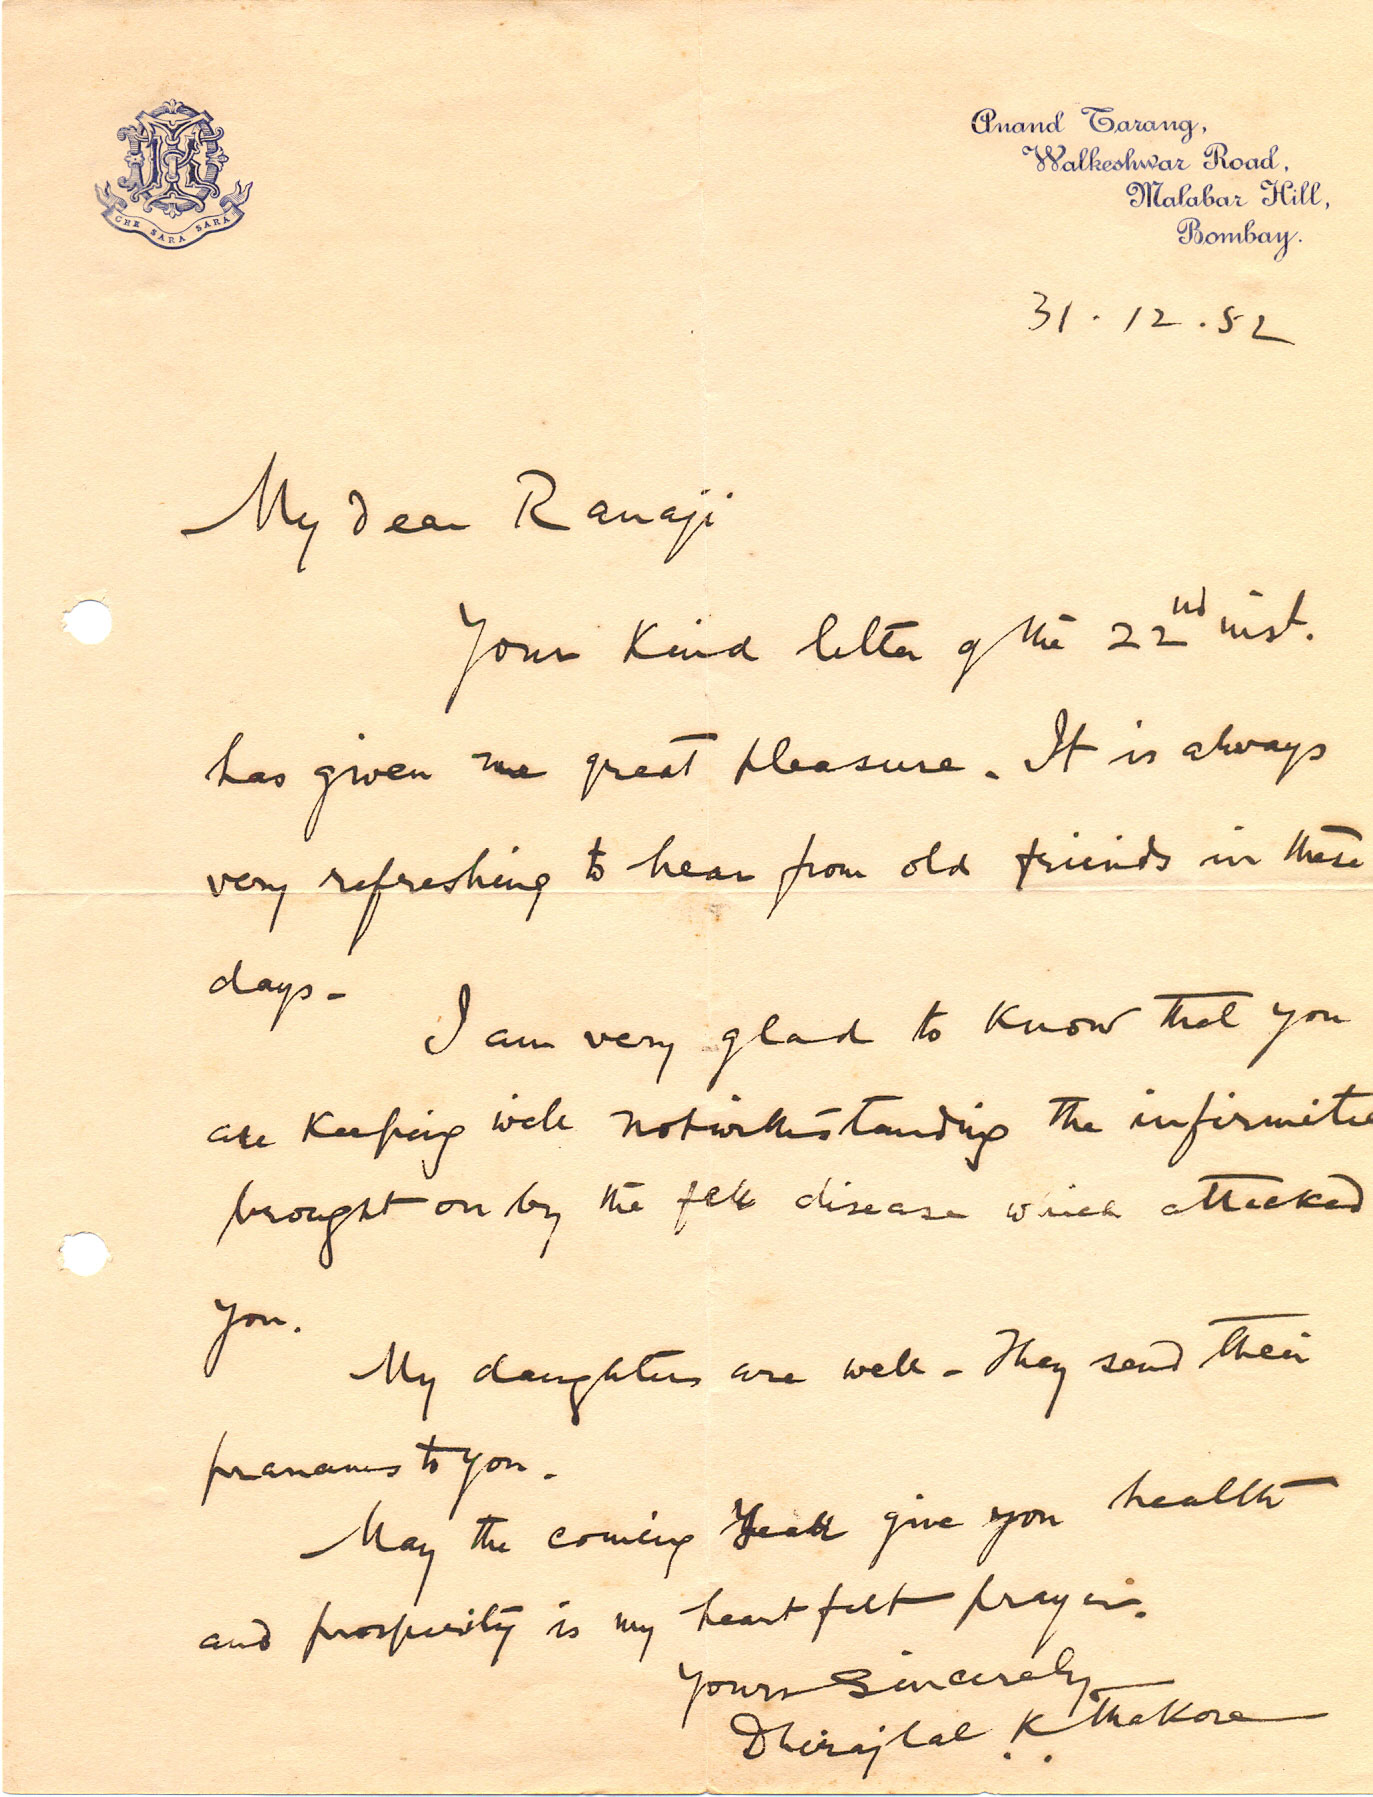 CHE SARA SARA
Anand Tarang,
Walkeshwar Road,
Malabar Hill,
Bombay.
31.12.52
My dear Ranaji
Your kind letter of the 22nd inst.
has given me great pleasure. It is always
very refreshing to hear from old friends in these
days-
I am very glad to know that you
are keeping well notwithstanding the infirmitie
brought on by the fell disease which attacked
you.
My daughters are well - They send their
pranams to you.
May the coming Year give you health
and prosperity is my heart felt prayer.
Yours Sincerely
Dhirajlal K. Thakore